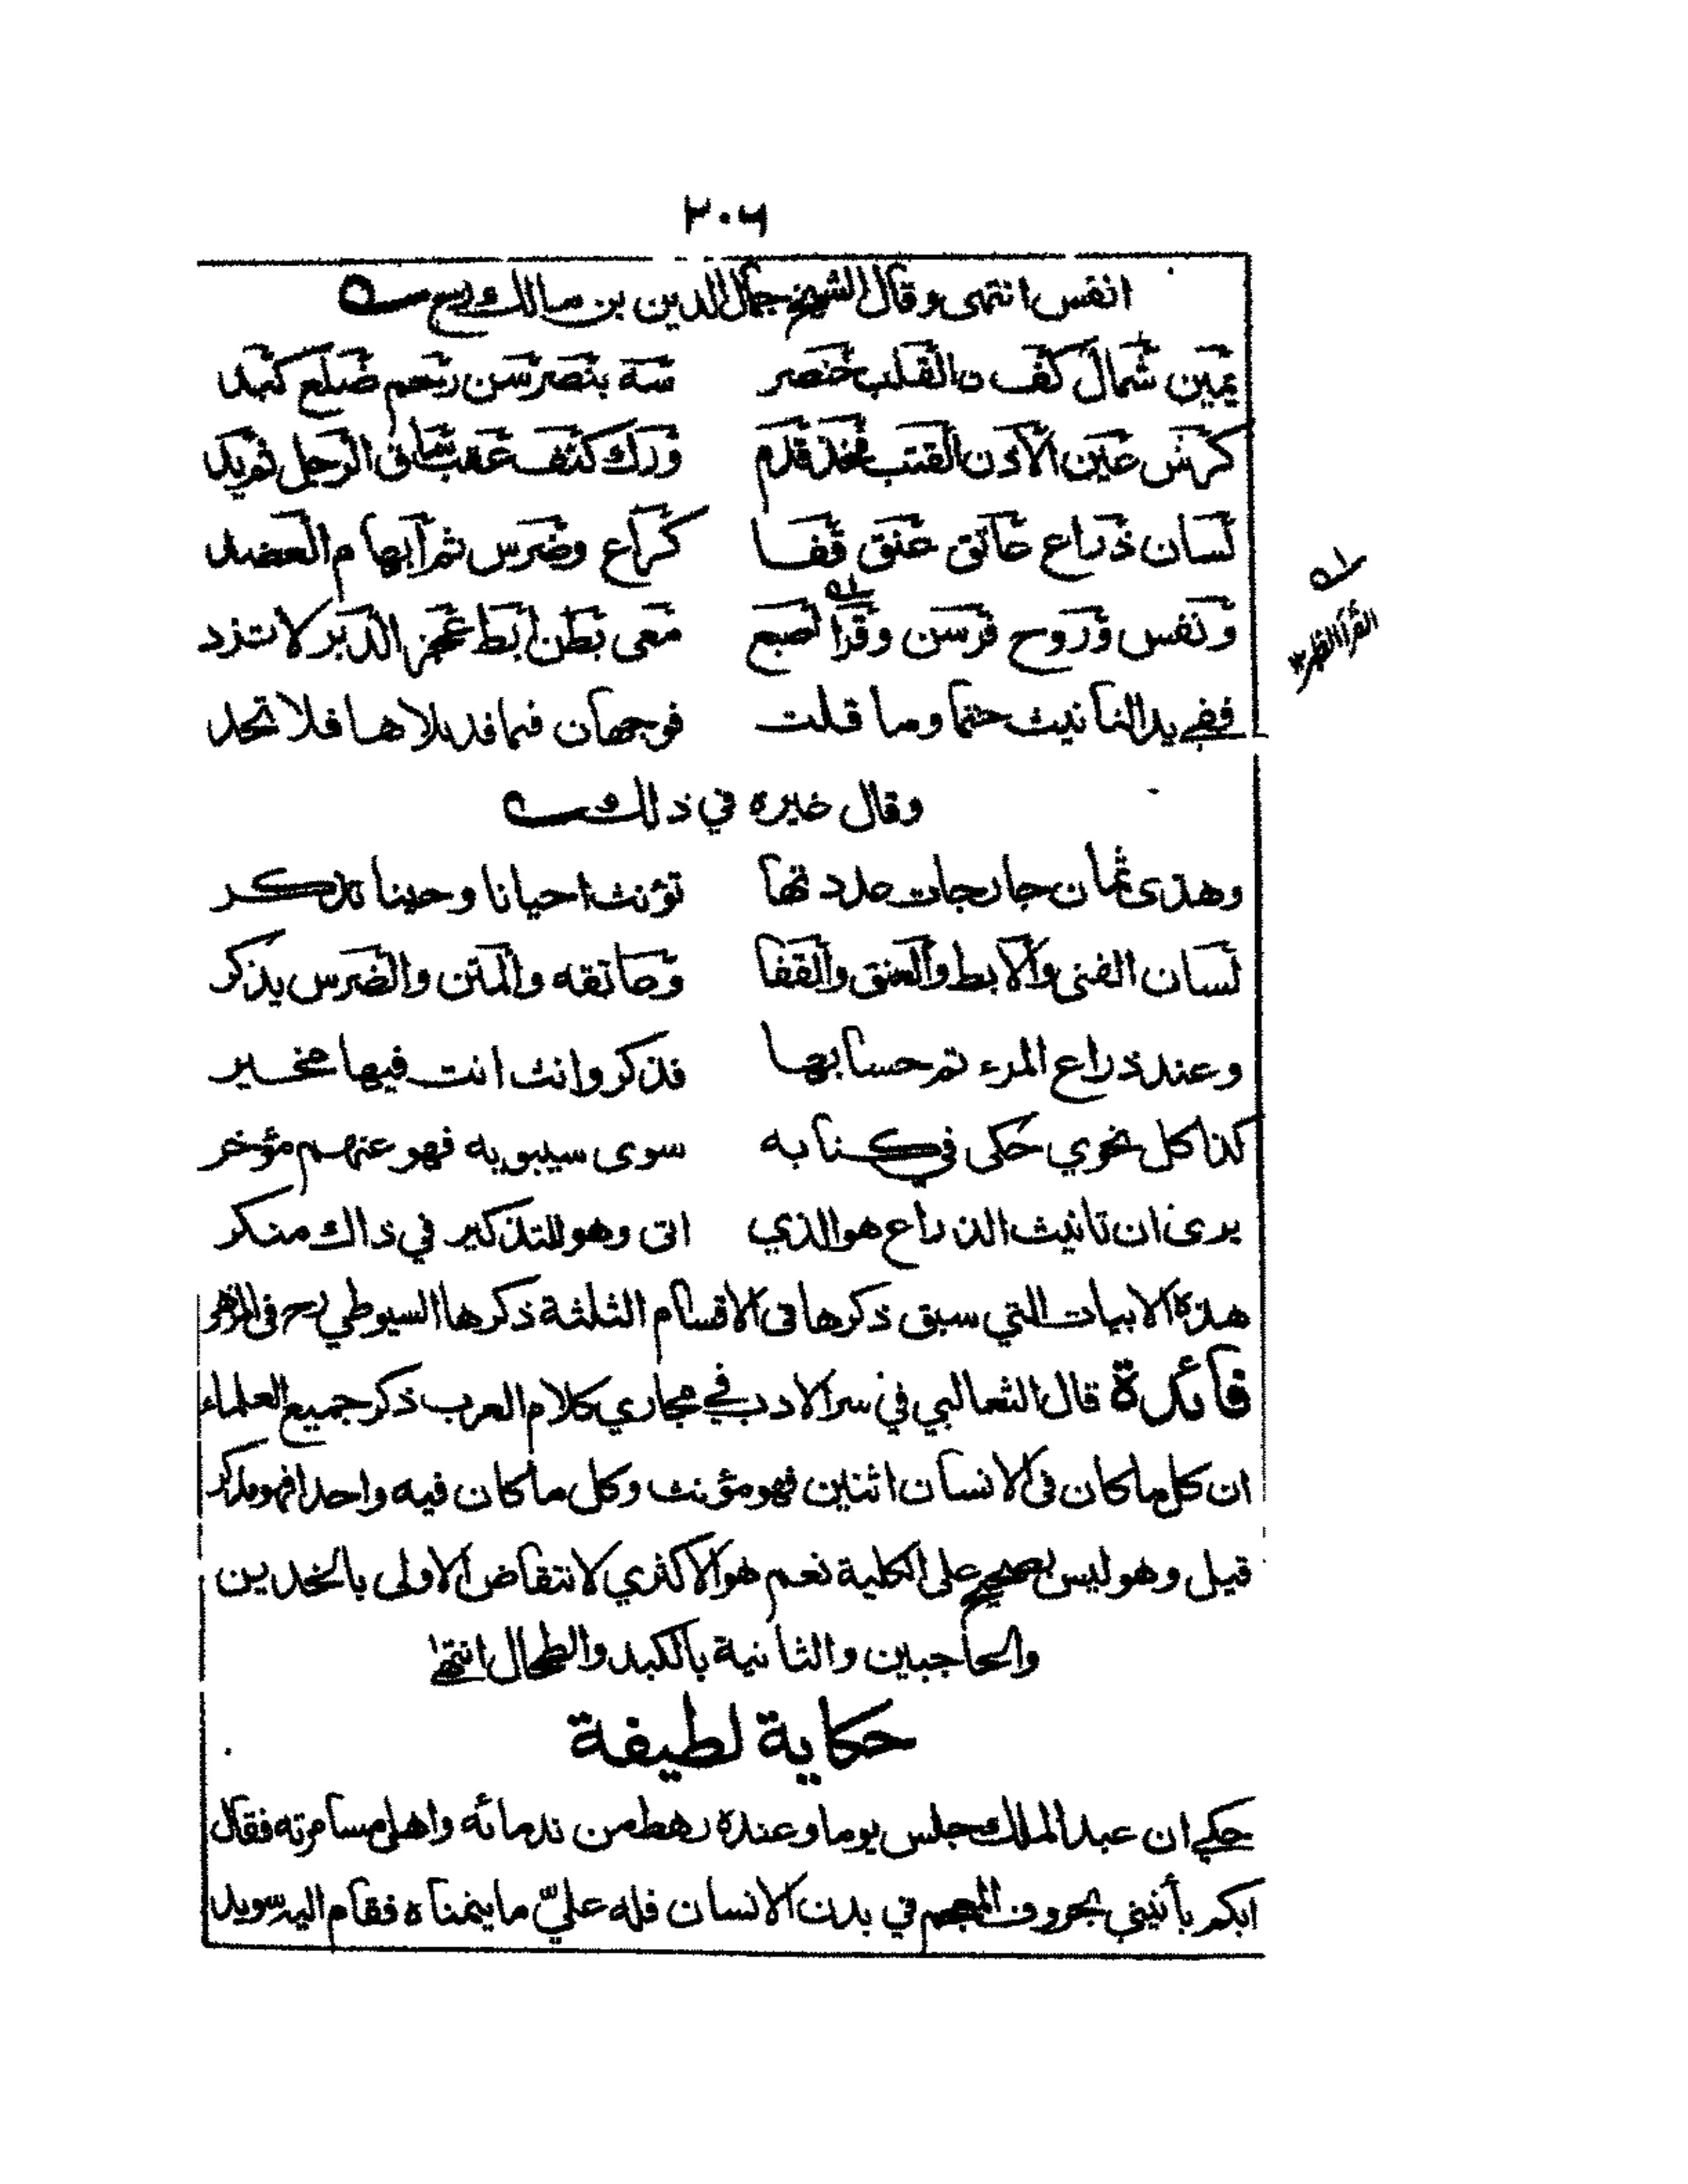 ٢٠٦
انفس انتهى وقال الشيخ جمال الدين بن مالك رح
يمين شمال كف القلب خنصر سه بنصر سن رحم ضلع كبد
كرش عين الاذن القتب فخذ قدم ورك كتف عقب ساق الرجل ثم يد
لسان ذراع عاتق عنق قفا كراع وضرس ثم ابهام العضد
ونفس وروح فرسن وقرا اصبع معى بطن ابط عجز الدبر لا تزد
القرا الظهر
ففي يد التانيث حتما وما قلت فوجهان فيما قد بلاها فلا تحد
وقال غيره في ذلك
وهذى ثمان جارحات عددتها تؤنث احيانا وحينا تذكر
لسان الفتى والابط والعنق والقفا وعاتقه والمتن والضرس يذكر
وعند ذراع المرء تم حسابها فذكر وانث انت فيها مخير
كذا كل نحوي حكى في كتابه سوى سيبويه فهو عنهم مؤخر
يرى ان تانيث الذراع هو الذي اتى وهو للتذكير في ذاك منكر
هذه الابيات التي سبق ذكرها فى الاقسام الثلثة ذكرها السيوطي رح فى المزهر
فائدة قال الثعالبي في سر الادب في مجاري كلام العرب ذكر جميع العلماء
ان كل ما كان فى الانسان اثنين فهو مؤنث وكل ما كان فيه واحدا فهو مذكر
قيل وهو ليس بصحيح على الكلية نعم هو الاكثري لانتقاض الاولى بالخدين
والحاجبين والثانية بالكبد والطحال انتهى
حكاية لطيفة
حكي ان عبد الملك جلس يوما وعنده رهط من ندمائه واهل مسامرته فقال
ايكم يأتيني بحروف المعجم في بدن الانسان فله عليّ ما يتمناه فقام اليه سويد